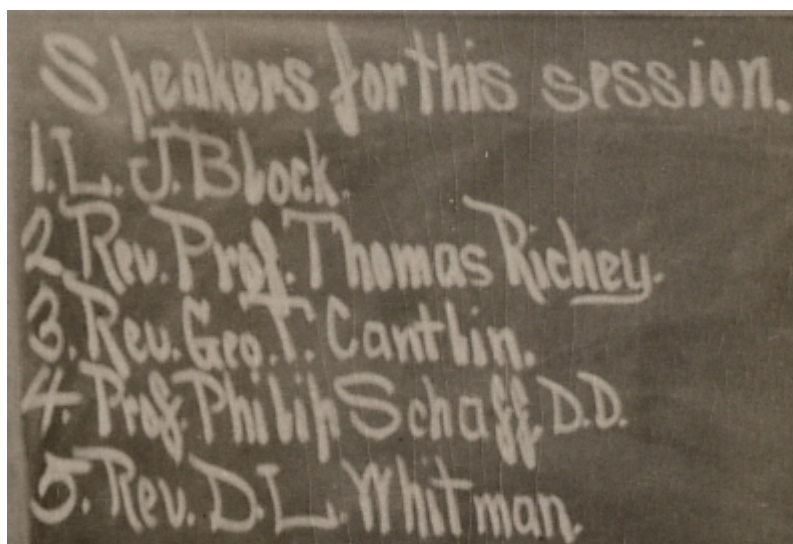 Speakers for this session.
1. L. J. Block.
2. Rev. Prof. Thomas Richey.
3. Rev. Geo. T. Cantlin.
4. Prof. Philip Schaff D.D.
5. Rev. D. L. Whitman.